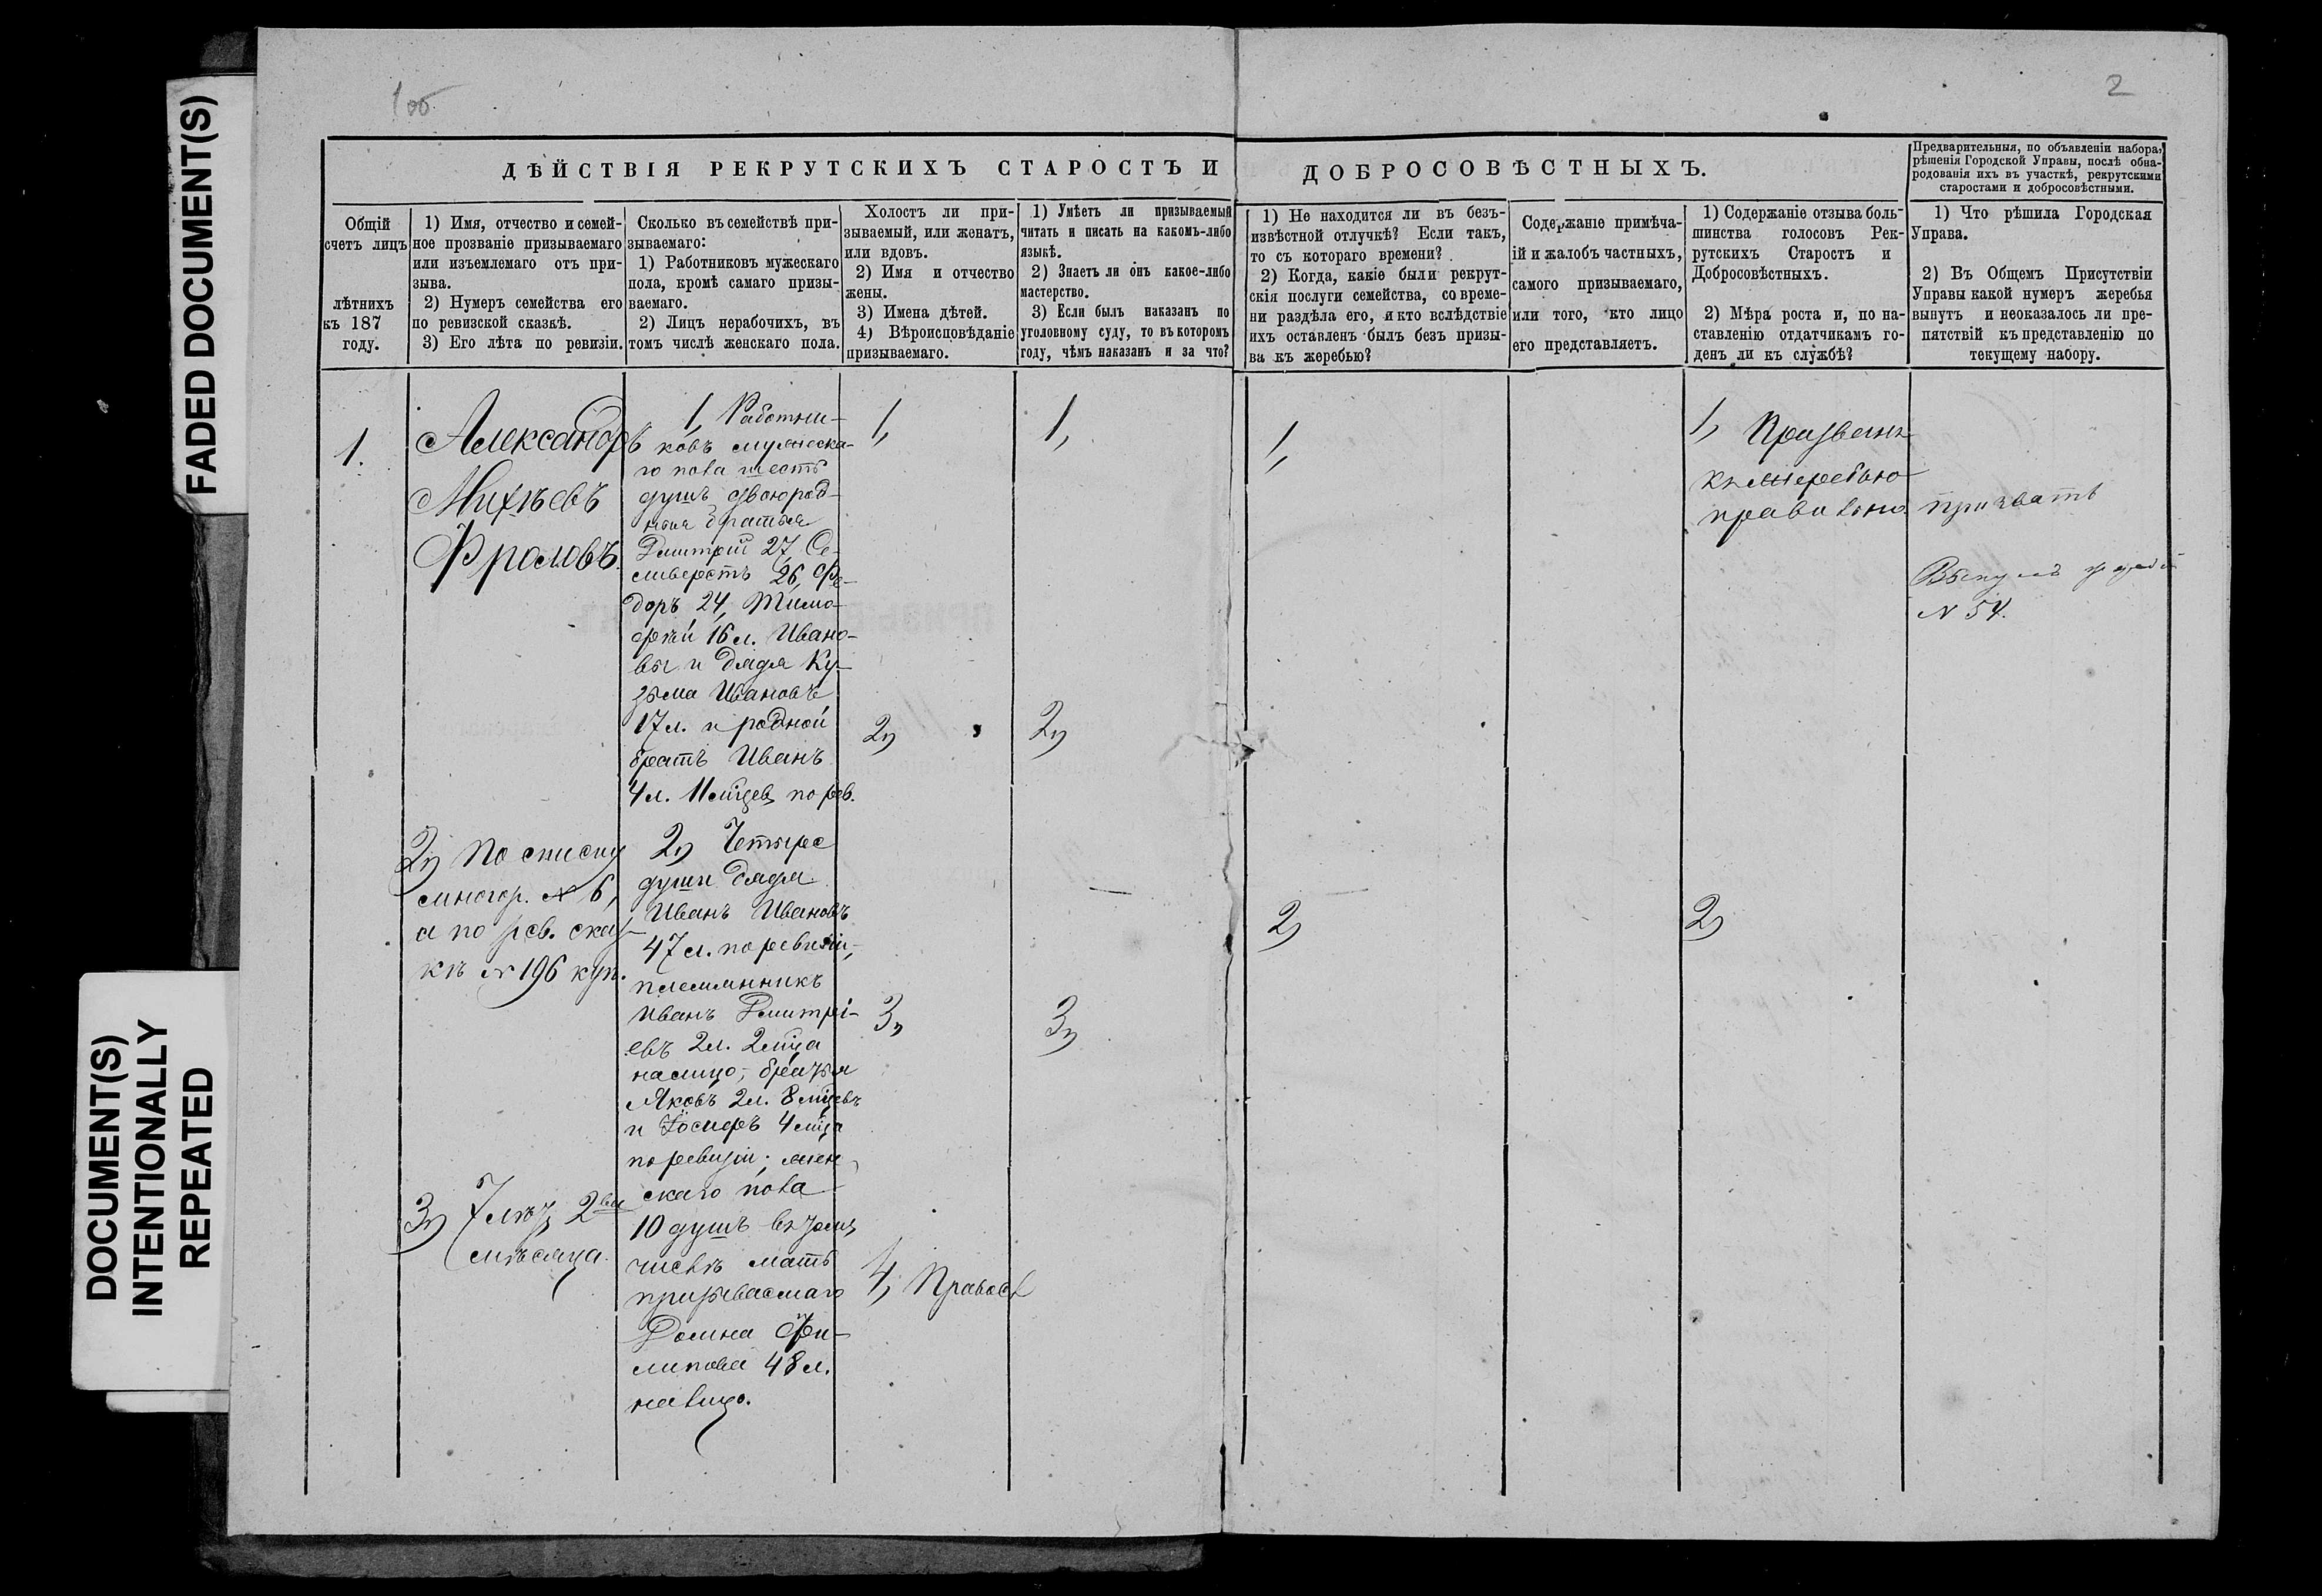 FADED DOCUMENT(S)
DOCUMENT(S)
INTENTIONALLY
REPEATED
1об
2
ДѢЙСТВІЯ РЕКРУТСКИХЪ СТАРОСТЪ И ДОБРОСОВѢСТНЫХЪ.
Предварительныя, по объявленіи набора,
рѣшенія Городской Управы, послѣ обна-
родованія ихъ въ участкѣ, рекрутскими
старостами и добросовѣстными.
Общій
счетъ лицъ
лѣтнихъ
къ 187
году.
1) Имя, отчество и семей-
ное прозваніе призываемаго
или изъемлемаго отъ при-
зыва.
2) Нумеръ семейства его
по ревизской сказкѣ.
3) Его лѣта по ревизіи.
Сколько въ семействѣ при-
зываемаго:
1) Работниковъ мужескаго
пола, кромѣ самаго призы-
ваемаго.
2) Лицъ нерабочихъ, въ
томъ числѣ женскаго пола.
Холостъ ли при-
зываемый, или женатъ,
или вдовъ.
2) Имя и отчество
жены.
3) Имена дѣтей.
4) Вѣроисповѣданіе
призываемаго.
1) Умѣетъ ли призываемый
читать и писать на какомъ-либо
языкѣ.
2) Знаетъ ли онъ какое-либо
мастерство.
3) Если былъ наказанъ по
уголовному суду, то въ которомъ
году, чѣмъ наказанъ и за что?
1) Не находится ли въ безъ-
извѣстной отлучкѣ? Если такъ,
то съ котораго времени?
2) Когда, какіе были рекрут-
скія послуги семейства, со време-
ни раздѣла его, и кто вслѣдствіе
ихъ оставленъ былъ безъ призы-
ва къ жеребью?
Содержаніе примѣча-
ній и жалобъ частныхъ,
самого призываемаго,
или того, кто лицо
его представляетъ.
1) Содержаніе отзыва боль-
шинства голосовъ Рек-
рутскихъ Старостъ и
Добросовѣстныхъ.
2) Мѣра роста и, по на-
ставленію отдатчикамъ го-
денъ ли къ службѣ?
1) Что рѣшила Городская
Управа.
2) Въ Общемъ Присутствіи
Управы какой нумеръ жеребья
вынутъ и неоказалось ли пре-
пятствій къ представленію по
текущему набору.
1.
Александръ
Михѣевъ
Фроловъ.
2) По списку
многор. № 6,
а по рев. сказ-
кѣ № 196 куп.
3) 7 лѣтъ 2ва
мѣсяца.
1, Работни-
ковъ мужеска-
го пола шесть
душъ двоюрод-
ныя братья
Дмитрій 27, Се-
ливерстъ 26, Фе-
доръ 24, Тимо-
фѣй 16 л. Ивано-
вы и дядя Ку-
зьма Ивановъ
17 л. и родной
братъ Иванъ
4 л. 11 мѣцев по рев.
2) Четыре
души дядя
Иванъ Ивановъ
47 л. по ревизіи,
племянникъ
Иванъ Дмитрі-
евъ 2 л. 2 мѣца
на лицо, братья
Яковъ 2 л. 8 мѣцевъ
и Іосифъ 4 мѣца
по ревизіи; жен-
скаго пола
10 душъ въ томъ
числѣ мать
призываемаго
Домна Фи-
липова 48 л.
на лицо.
1,
2)
3,
4, Правосл
1,
2)
3)
1,
2)
1, Призванъ
къ жеребью
правильно.
2)
призвать
Вынулъ жребій
№ 54.